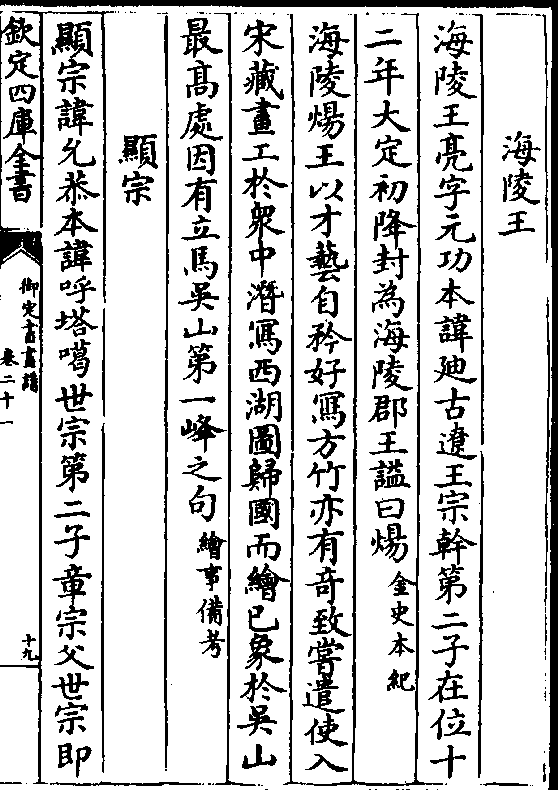 海陵王
海陵王亮字元功本諱廸古遼王宗幹第二子在位十
二年大定初降封為海陵郡王諡曰煬金史本紀
海陵煬王以才藝自矜好寫方竹亦有奇致嘗遣使入
宋藏畫工於衆中潛寫西湖圖歸國而繪已象於吳山
最高處因有立馬吳山第一峰之句繪事備考
顯宗
顯宗諱允恭本諱呼塔噶世宗第二子章宗父世宗即
欽定四庫全書
御定書畫譜
卷二十一
十九